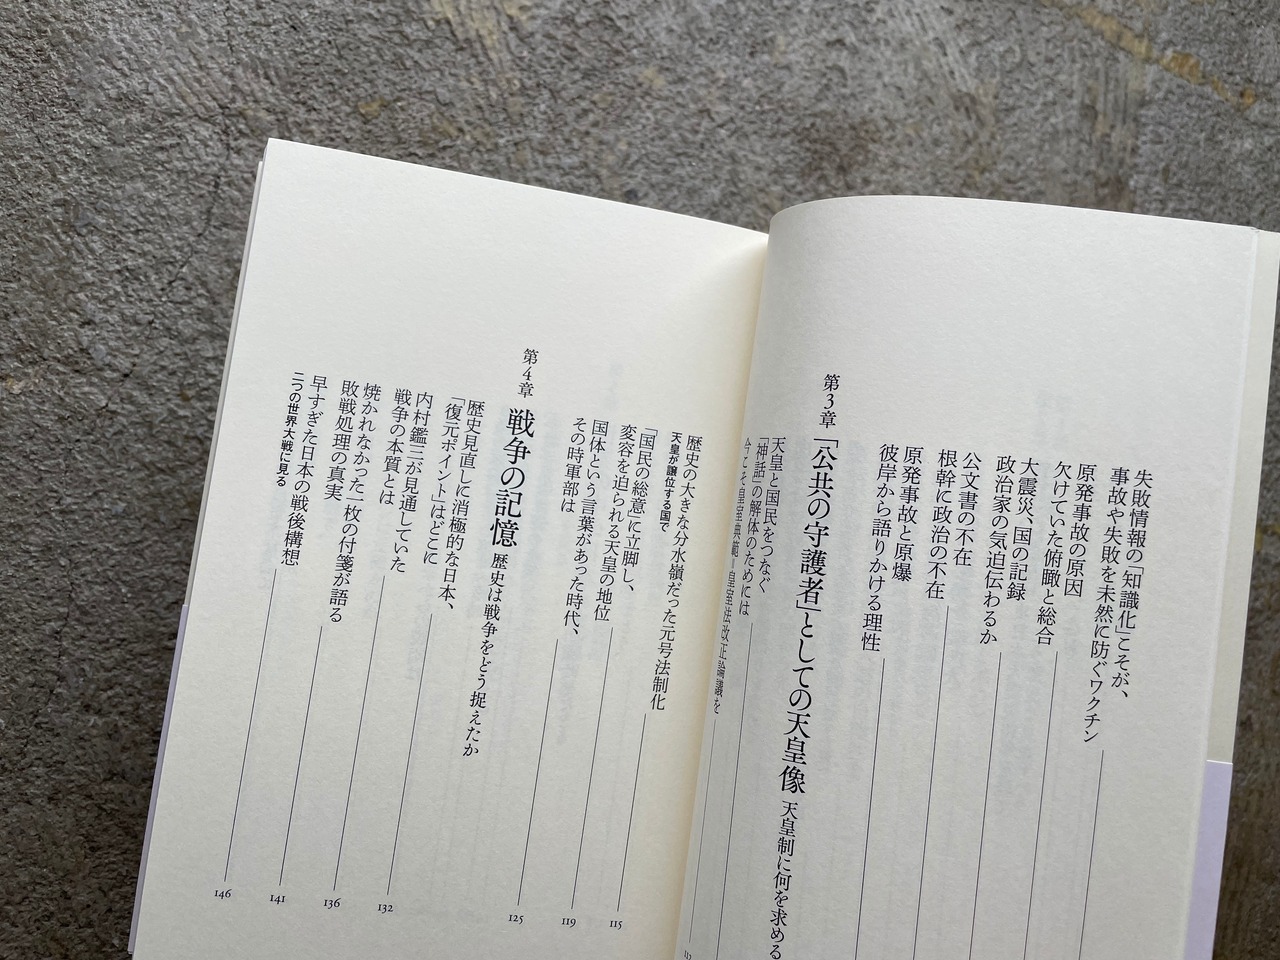 失敗情報の「知識化」こそが、
事故や失敗を未然に防ぐワクチン
原発事故の原因
欠けていた俯瞰と総合
大震災、国の記録
政治家の気迫伝わるか
公文書の不在
根幹に政治の不在
原発事故と原爆
彼岸から語りかける理性
第3章 「公共の守護者」としての天皇像 天皇制に何を求める
天皇と国民をつなぐ
「神話」の解体のためには
今こそ皇室典範=皇室法改正論議を
歴史の大きな分水嶺だった元号法制化
天皇が譲位する国で
115
「国民の総意」に立脚し、
変容を迫られる天皇の地位
119
国体という言葉があった時代、
その時軍部は
125
第4章 戦争の記憶 歴史は戦争をどう捉えたか
歴史見直しに消極的な日本、
「復元ポイント」はどこに
132
内村鑑三が見通していた
戦争の本質とは
136
焼かれなかった一枚の付箋が語る
敗戦処理の真実
141
早すぎた日本の戦後構想
二つの世界大戦に見る
146